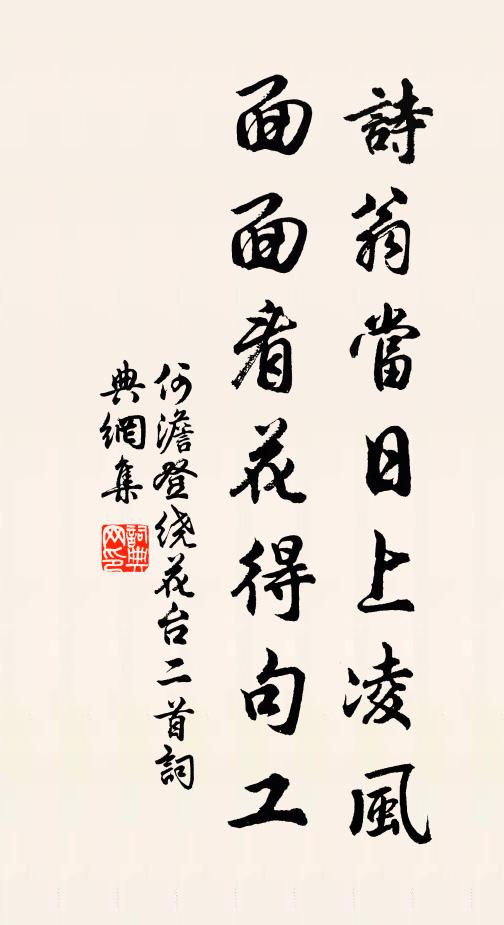 詩翁當日上凌風
面面看花得句工
何澹登绕花台二首詞
典網集
詞典
网印